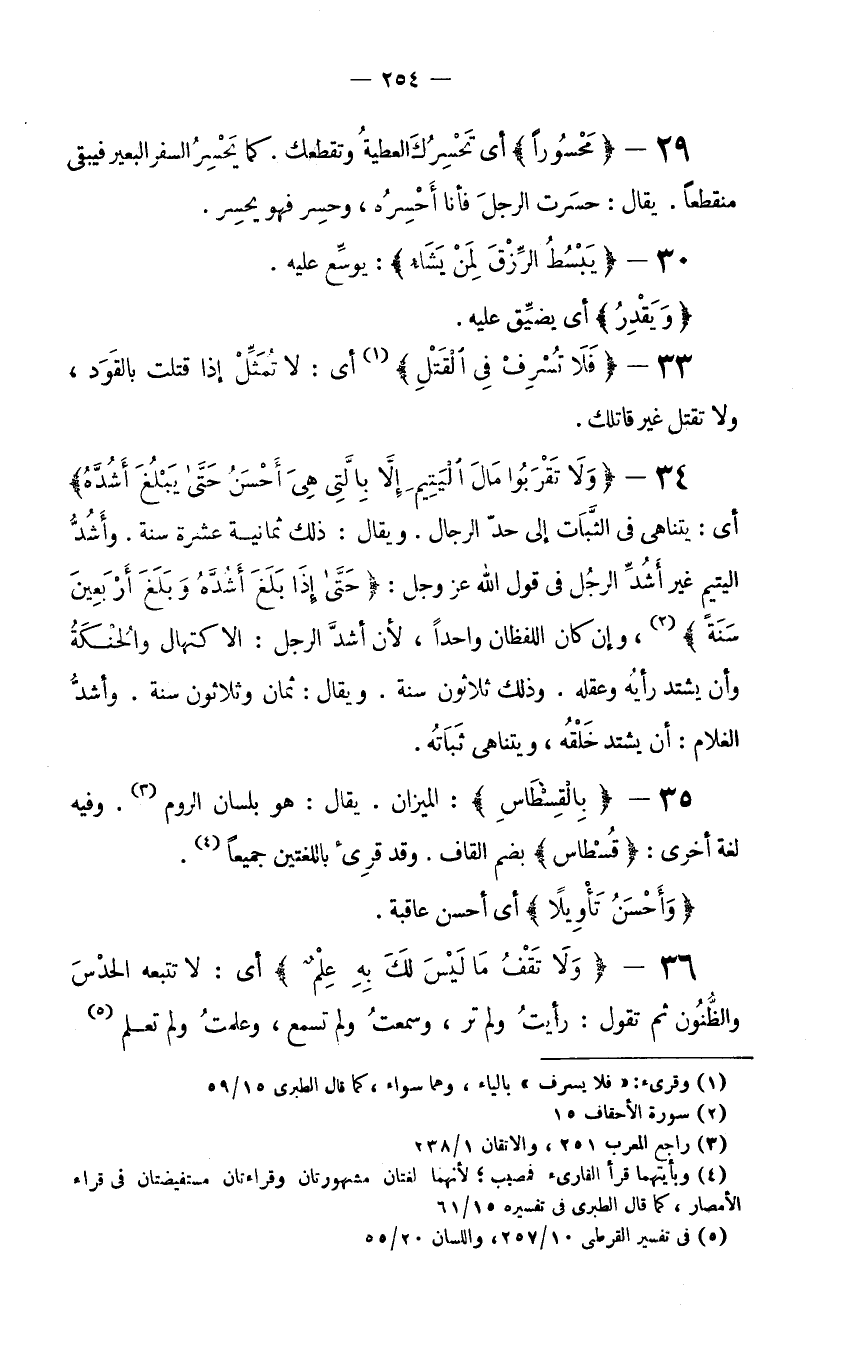 — ٢٥٤ —
٢٩ – ﴿ مَحْسُوراً ﴾ أى تَحْسِرُكَ العطيةُ وتقطعك . كما يَحْسِرُ السفر البعير فيبقى
منقطعاً . يقال : حسَرت الرجلَ فأنا أَحْسِرُه ، وحسِر فهو يحسِر .
٣٠ – ﴿ يَبْسُطُ الرِّزْقَ لِمَنْ يَشَاء ﴾ : يوسِّع عليه .
﴿ وَيَقْدِرُ ﴾ أى يضيِّق عليه .
٣٣ – ﴿ فَلَا تُسْرِفْ فِي ٱلْقَتْلِ ﴾ (١) أى : لا تُمَثِّلْ إذا قتلت بالقَوَد ،
ولا تقتل غير قاتلك .
٣٤ – ﴿ وَلَا تَقْرَبُوا مَالَ ٱلْيَتِيمِ إِلَّا بِالَّتِي هِيَ أَحْسَنُ حَتَّىٰ يَبْلُغَ أَشُدَّهُ ﴾
أى : يتناهى فى الثَّبَات إلى حدّ الرجال . ويقال : ذلك ثمانيــة عشرة سنة . وأَشُدُّ
اليتيم غير أَشُدِّ الرجُل فى قول الله عز وجل : ﴿ حَتَّىٰ إِذَا بَلَغَ أَشُدَّهُ وَبَلَغَ أَرْبَعِينَ
سَنَةً ﴾ (٢) ، وإن كان اللفظان واحداً ، لأن أشدَّ الرجل : الاكتهال والحُنْــكَةُ
وأن يشتد رأيُه وعقله . وذلك ثلاثون سنة . ويقال : ثمان وثلاثون سنة . وأشدُّ
الغلام : أن يشتد خَلْقُه ، ويتناهى ثَبَاتُه .
٣٥ – ﴿ بِالْقِسْطَاسِ ﴾ : الميزان . يقال : هو بلسان الروم (٣) . وفيه
لغة أخرى : ﴿ قُسْطاس ﴾ بضم القاف . وقد قرِىءَ باللغتين جميعاً (٤) .
﴿ وَأَحْسَنُ تَأْوِيلًا ﴾ أى أحسن عاقبة .
٣٦ – ﴿ وَلَا تَقْفُ مَا لَيْسَ لَكَ بِهِ عِلْمٌ ﴾ أى : لا تتبعه الحَدْسَ
والظُّنُون ثم تقول : رأيتُ ولم تر ، وسمعتُ ولم تسمع ، وعلمتُ ولم تعــلم (٥)
(١) وقرىء: « فلا يسرف » بالياء ، وهما سواء ، كما قال الطبرى ١٥/٥٩
(٢) سورة الأحقاف ١٥
(٣) راجع المعرب ٢٥١ ، والاتقان ١/٢٣٨
(٤) وبأيتهما قرأ القارىء فمصيب ؛ لأنهما لغتان مشهورتان وقراءتان مستفيضتان فى قراء
الأمصار ، كما قال الطبرى فى تفسيره ١٥/٦١
(٥) فى تفسير القرطبى ١٠/٢٥٧، واللسان ٢٠/٥٥